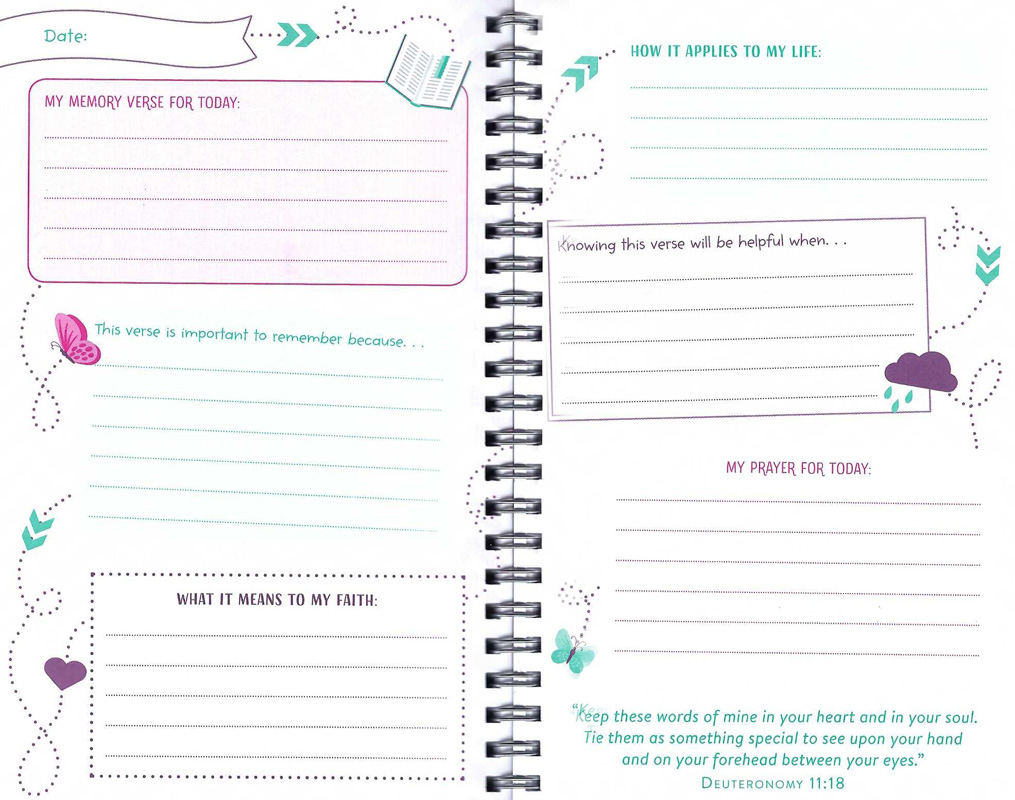 Date:
MY MEMORY VERSE FOR TODAY:
This verse is important to remember because. . .
WHAT IT MEANS TO MY FAITH:
HOW IT APPLIES TO MY LIFE:
Knowing this verse will be helpful when. . .
MY PRAYER FOR TODAY:
“Keep these words of mine in your heart and in your soul.
Tie them as something special to see upon your hand
and on your forehead between your eyes.”
DEUTERONOMY 11:18